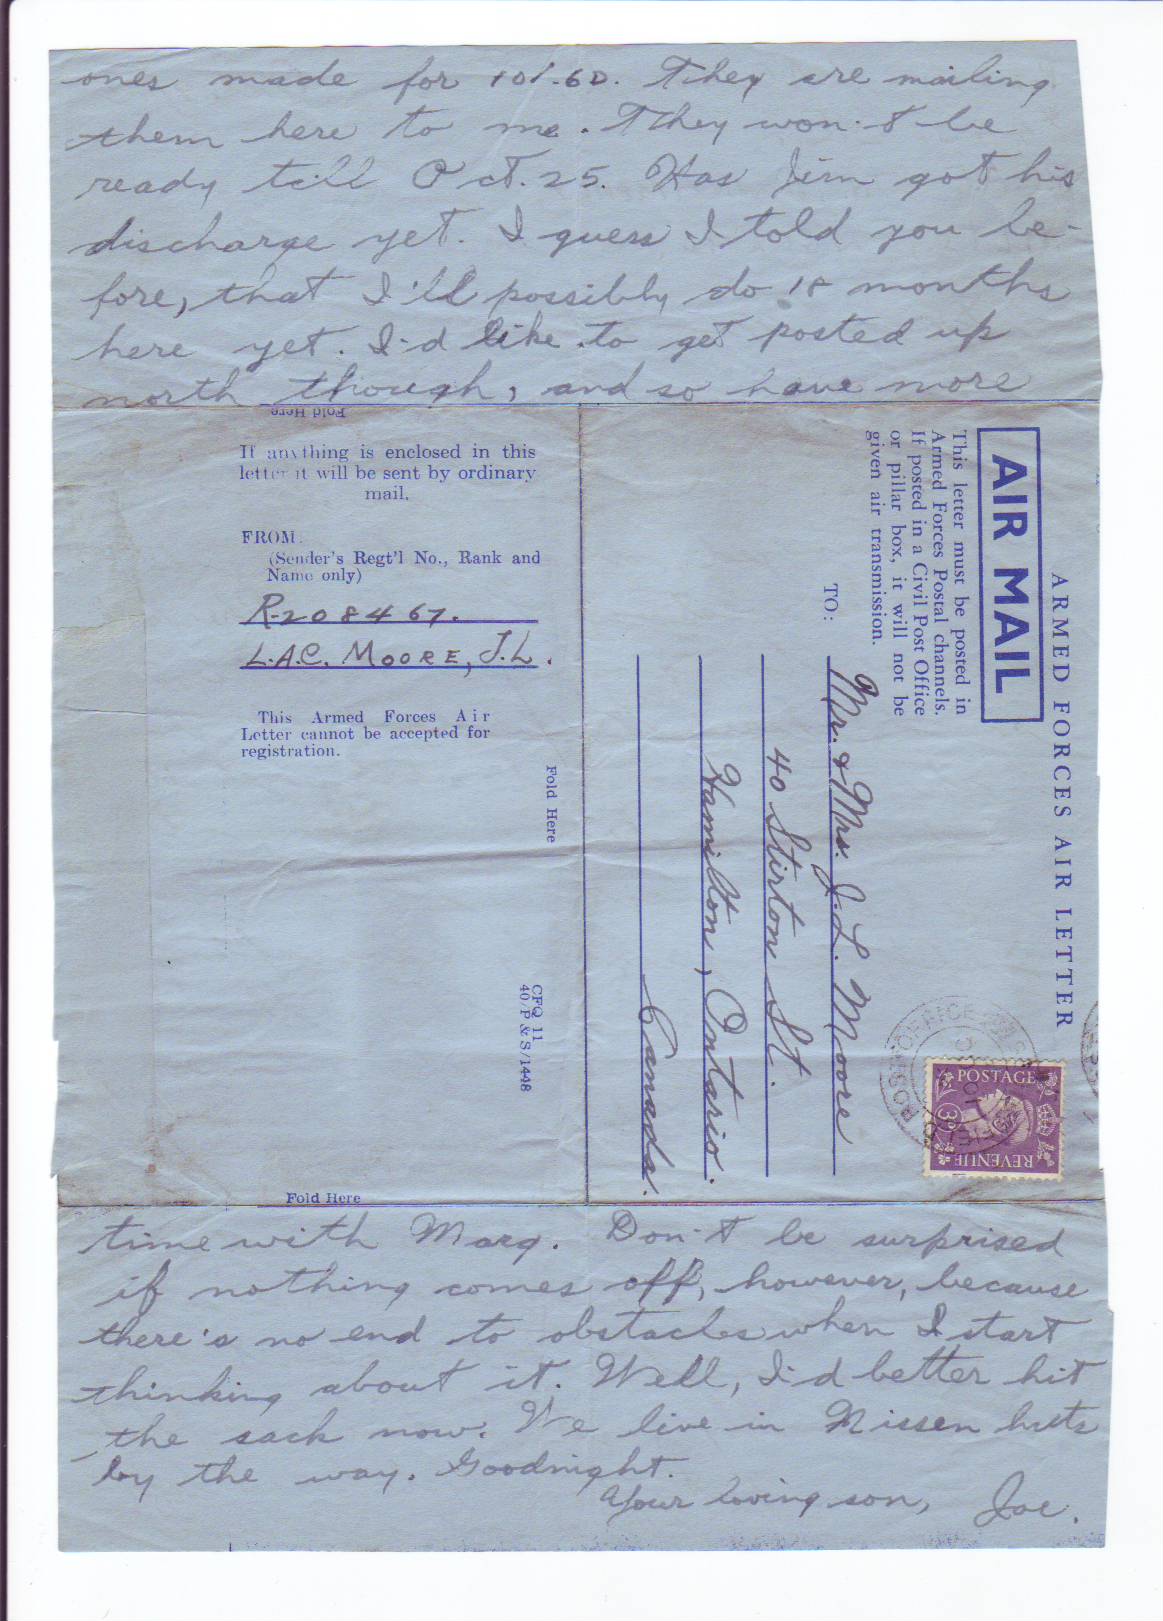 ones made for 10/-6D. They are mailing
them here to me. They won't be
ready till Oct. 25. Has Jim got his
discharge yet. I guess I told you be-
fore, that I'll possibly do 18 months
here yet. I'd like to get posted up
north though, and so have more
Fold Here
If anything is enclosed in this
letter it will be sent by ordinary
mail.
FROM
(Sender's Regt'l No., Rank and
Name only)
R-208467.
L.A.C. MOORE, J.L.
This Armed Forces Air
Letter cannot be accepted for
registration.
Fold Here
CFQ 11
40/P & S/1448
Fold Here
ARMED FORCES AIR LETTER
AIR MAIL
This letter must be posted in
Armed Forces Postal channels.
If posted in a Civil Post Office
or pillar box, it will not be
given air transmission.
TO:
Mr. & Mrs. J. L. Moore
40 Stirton St.
Hamilton, Ontario.
Canada.
POSTAGE
3D
REVENUE
time with Marg. Don't be surprised
if nothing comes off, however, because
there's no end to obstacles when I start
thinking about it. Well, I'd better hit
the sack now. We live in Nissen huts
by the way. Goodnight.
Your loving son, Joe.